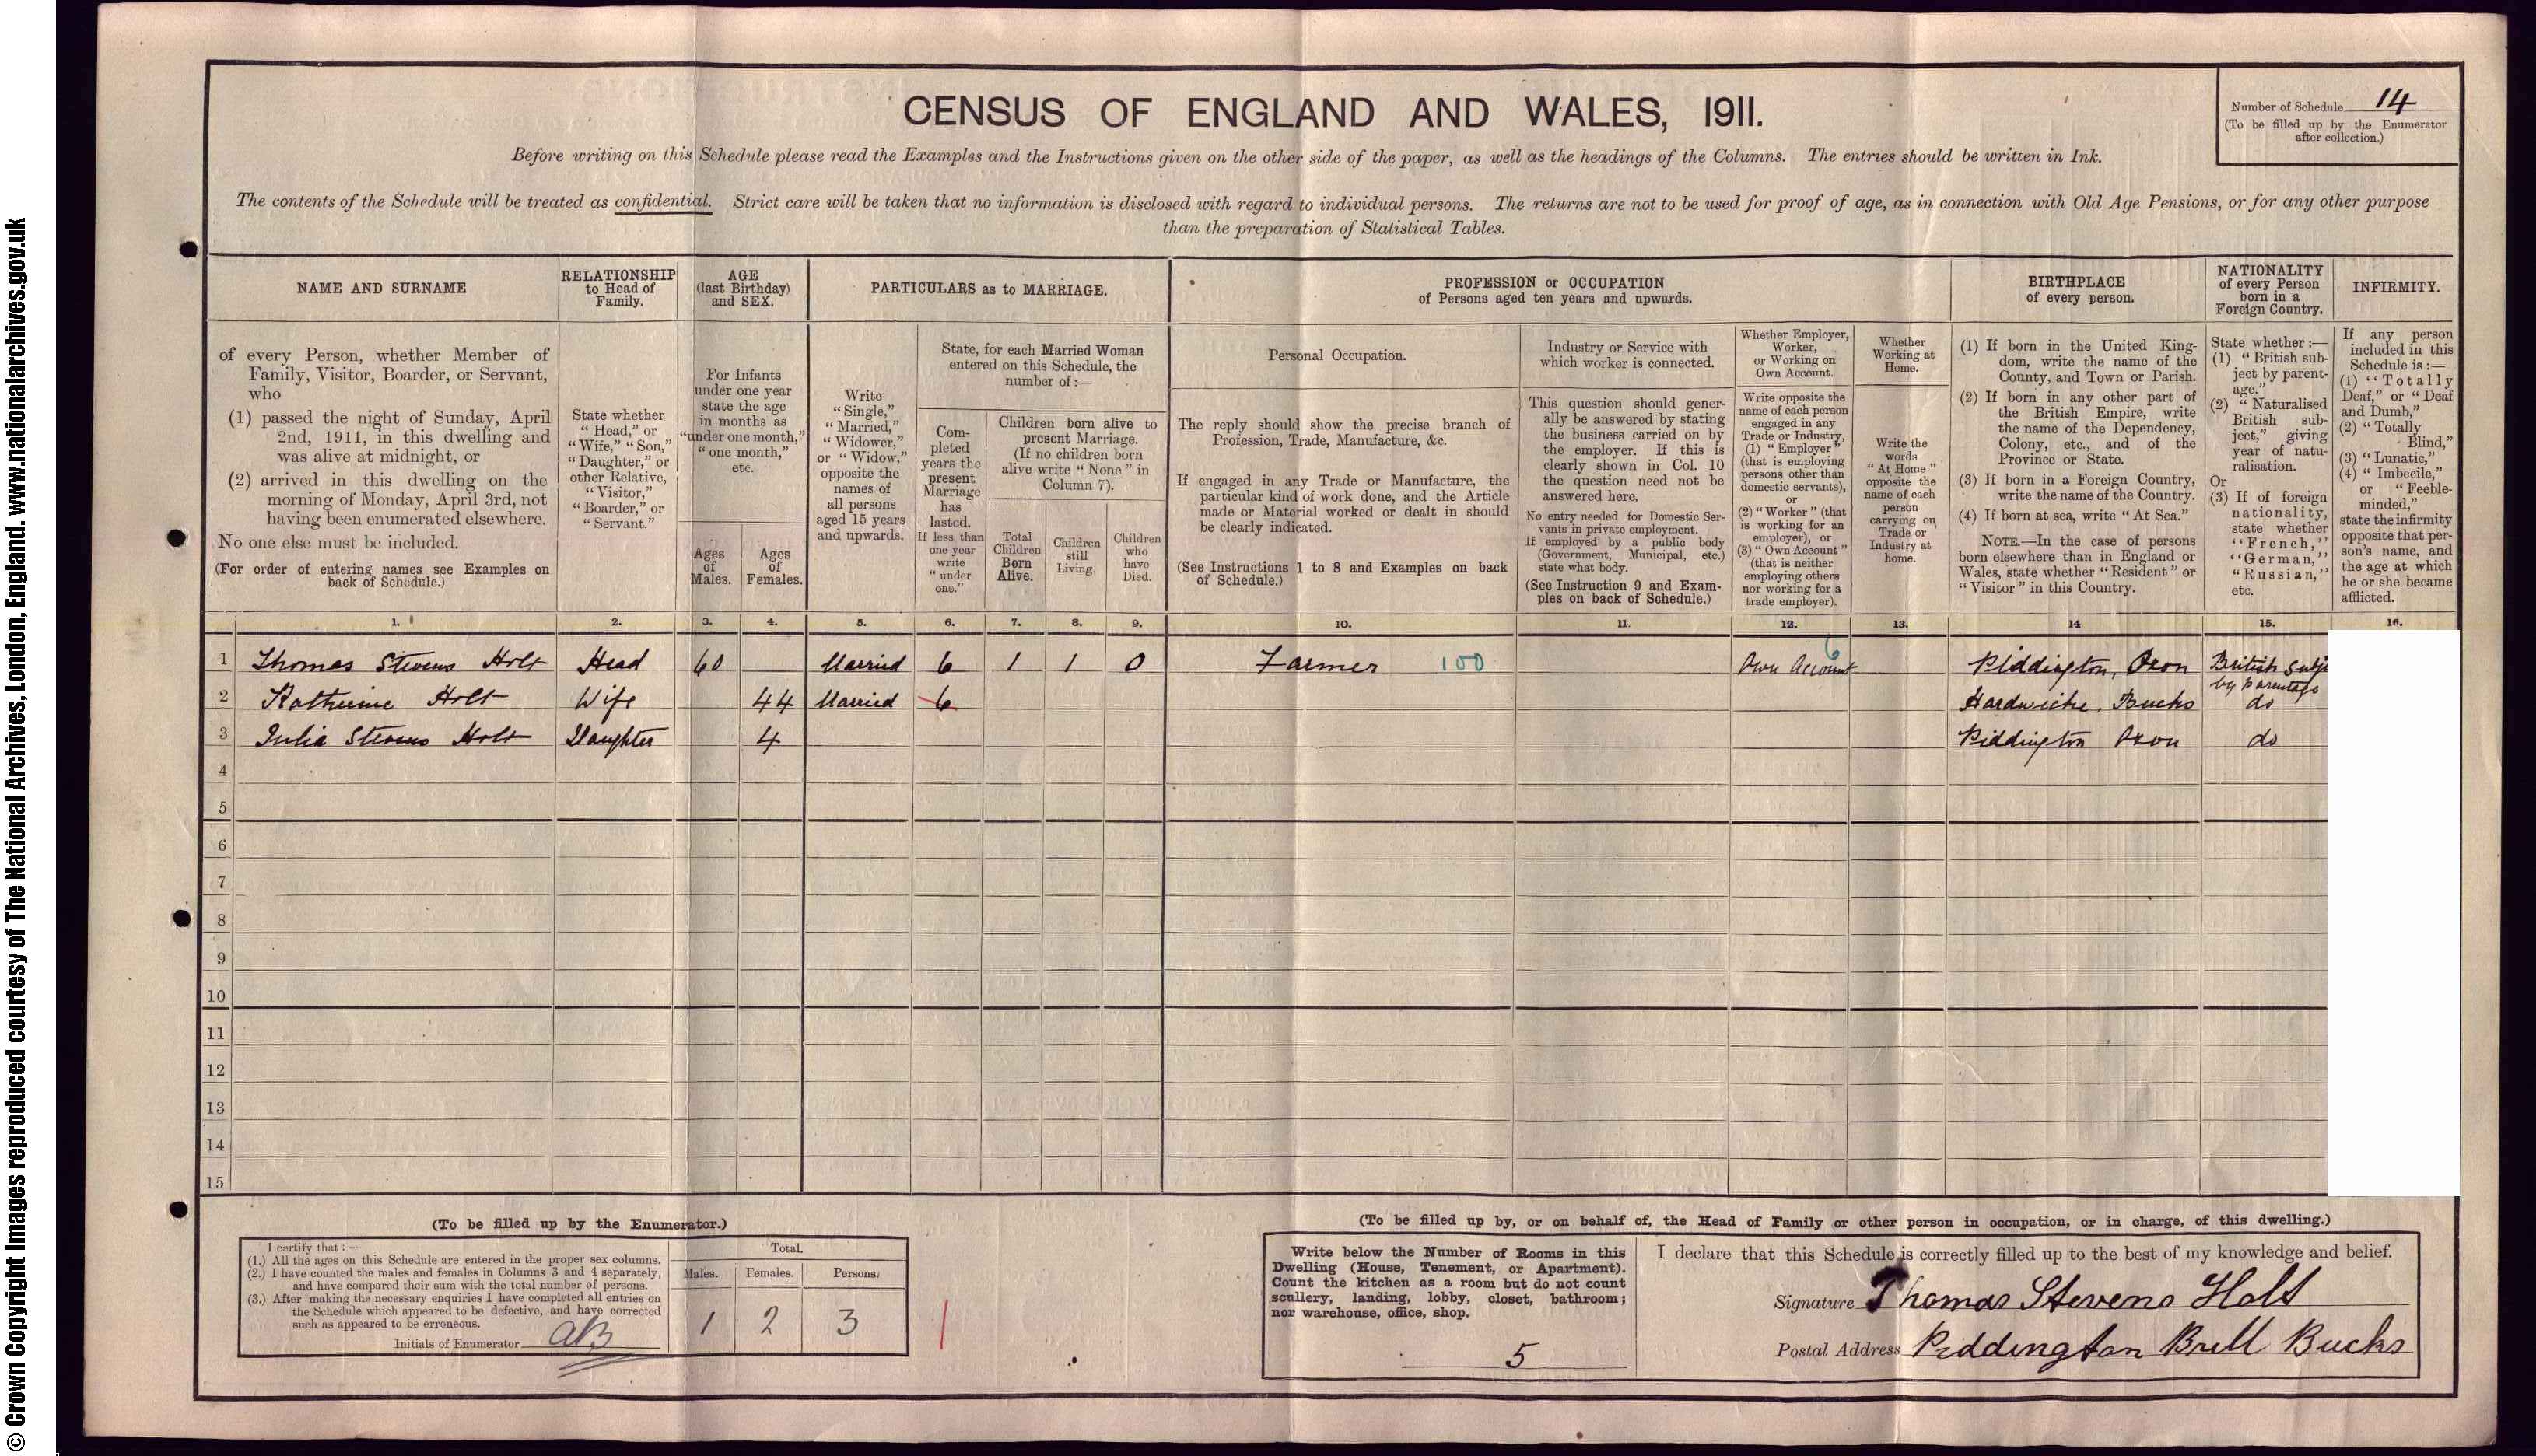 CENSUS OF ENGLAND AND WALES, 1911.
Number of Schedule 14
(To be filled up by the Enumerator
after collection.)
Before writing on this Schedule please read the Examples and the Instructions given on the other side of the paper, as well as the headings of the Columns. The entries should be written in Ink.
The contents of the Schedule will be treated as confidential. Strict care will be taken that no information is disclosed with regard to individual persons. The returns are not to be used for proof of age, as in connection with Old Age Pensions, or for any other purpose
than the preparation of Statistical Tables.
NAME AND SURNAME
of every Person, whether Member of
Family, Visitor, Boarder, or Servant,
who
(1) passed the night of Sunday, April
2nd, 1911, in this dwelling and
was alive at midnight, or
(2) arrived in this dwelling on the
morning of Monday, April 3rd, not
having been enumerated elsewhere.
No one else must be included.
(For order of entering names see Examples on
back of Schedule.)
RELATIONSHIP
to Head of
Family.
State whether
“Head,” or
“Wife,” “Son,”
“Daughter,” or
other Relative,
“Visitor,”
“Boarder,” or
“Servant.”
AGE
(last Birthday)
and SEX.
For Infants
under one year
state the age
in months as
“under one month,”
“one month,”
etc.
Ages
of
Males.
Ages
of
Females.
PARTICULARS as to MARRIAGE.
Write
“Single,”
“Married,”
“Widower,”
or “Widow,”
opposite the
names of
all persons
aged 15 years
and upwards.
State, for each Married Woman
entered on this Schedule, the
number of:—
Com-
pleted
years the
present
Marriage
has
lasted.
If less than
one year
write
“under
one.”
Children born alive to
present Marriage.
(If no children born
alive write “None” in
Column 7).
Total
Children
Born
Alive.
Children
still
Living.
Children
who
have
Died.
PROFESSION or OCCUPATION
of Persons aged ten years and upwards.
Personal Occupation.
The reply should show the precise branch of
Profession, Trade, Manufacture, &c.
If engaged in any Trade or Manufacture, the
particular kind of work done, and the Article
made or Material worked or dealt in should
be clearly indicated.
(See Instructions 1 to 8 and Examples on back
of Schedule.)
Industry or Service with
which worker is connected.
This question should gener-
ally be answered by stating
the business carried on by
the employer. If this is
clearly shown in Col. 10
the question need not be
answered here.
No entry needed for Domestic Ser-
vants in private employment.
If employed by a public body
(Government, Municipal, etc.)
state what body.
(See Instruction 9 and Exam-
ples on back of Schedule.)
Whether Employer,
Worker,
or Working on
Own Account.
Write opposite the
name of each person
engaged in any
Trade or Industry,
(1) “Employer”
(that is employing
persons other than
domestic servants),
or
(2) “Worker” (that
is working for an
employer), or
(3) “Own Account”
(that is neither
employing others
nor working for a
trade employer).
Whether
Working at
Home.
Write the
words
“At Home”
opposite the
name of each
person
carrying on
Trade or
Industry at
home.
BIRTHPLACE
of every person.
(1) If born in the United King-
dom, write the name of the
County, and Town or Parish.
(2) If born in any other part of
the British Empire, write
the name of the Dependency,
Colony, etc., and of the
Province or State.
(3) If born in a Foreign Country,
write the name of the Country.
(4) If born at sea, write “At Sea.”
NOTE.—In the case of persons
born elsewhere than in England or
Wales, state whether “Resident” or
“Visitor” in this Country.
NATIONALITY
of every Person
born in a
Foreign Country.
State whether:—
(1) “British sub-
ject by parent-
age,”
(2) “Naturalised
British sub-
ject,” giving
year of natu-
ralisation.
Or
(3) If of foreign
nationality,
state whether
“French,”
“German,”
“Russian,”
etc.
INFIRMITY.
If any person
included in this
Schedule is:—
(1) “Totally
Deaf,” or “Deaf
and Dumb,”
(2) “Totally
Blind,”
(3) “Lunatic,”
(4) “Imbecile,”
or “Feeble-
minded,”
state the infirmity
opposite that per-
son's name, and
the age at which
he or she became
afflicted.
1. 2. 3. 4. 5. 6. 7. 8. 9. 10. 11. 12. 13. 14 15. 16.
1 Thomas Stevens Holt Head 60 Married 6 1 1 0 Farmer 100 Own Account 6 Piddington, Oxon British Subje by parentage
2 Katherine Holt Wife 44 Married 6 Hardwicke, Bucks do
3 Julia Stevens Holt Daughter 4 Piddington Oxon do
4
5
6
7
8
9
10
11
12
13
14
15
(To be filled up by the Enumerator.)
I certify that:—
(1.) All the ages on this Schedule are entered in the proper sex columns.
(2.) I have counted the males and females in Columns 3 and 4 separately,
and have compared their sum with the total number of persons.
(3.) After making the necessary enquiries I have completed all entries on
the Schedule which appeared to be defective, and have corrected
such as appeared to be erroneous.
Initials of Enumerator AB
Total.
Males. Females. Persons.
1 2 3
1
(To be filled up by, or on behalf of, the Head of Family or other person in occupation, or in charge, of this dwelling.)
Write below the Number of Rooms in this
Dwelling (House, Tenement, or Apartment).
Count the kitchen as a room but do not count
scullery, landing, lobby, closet, bathroom;
nor warehouse, office, shop.
5
I declare that this Schedule is correctly filled up to the best of my knowledge and belief.
Signature Thomas Stevens Holt
Postal Address Piddington Brill Bucks
© Crown Copyright Images reproduced courtesy of The National Archives, London, England. www.nationalarchives.gov.uk